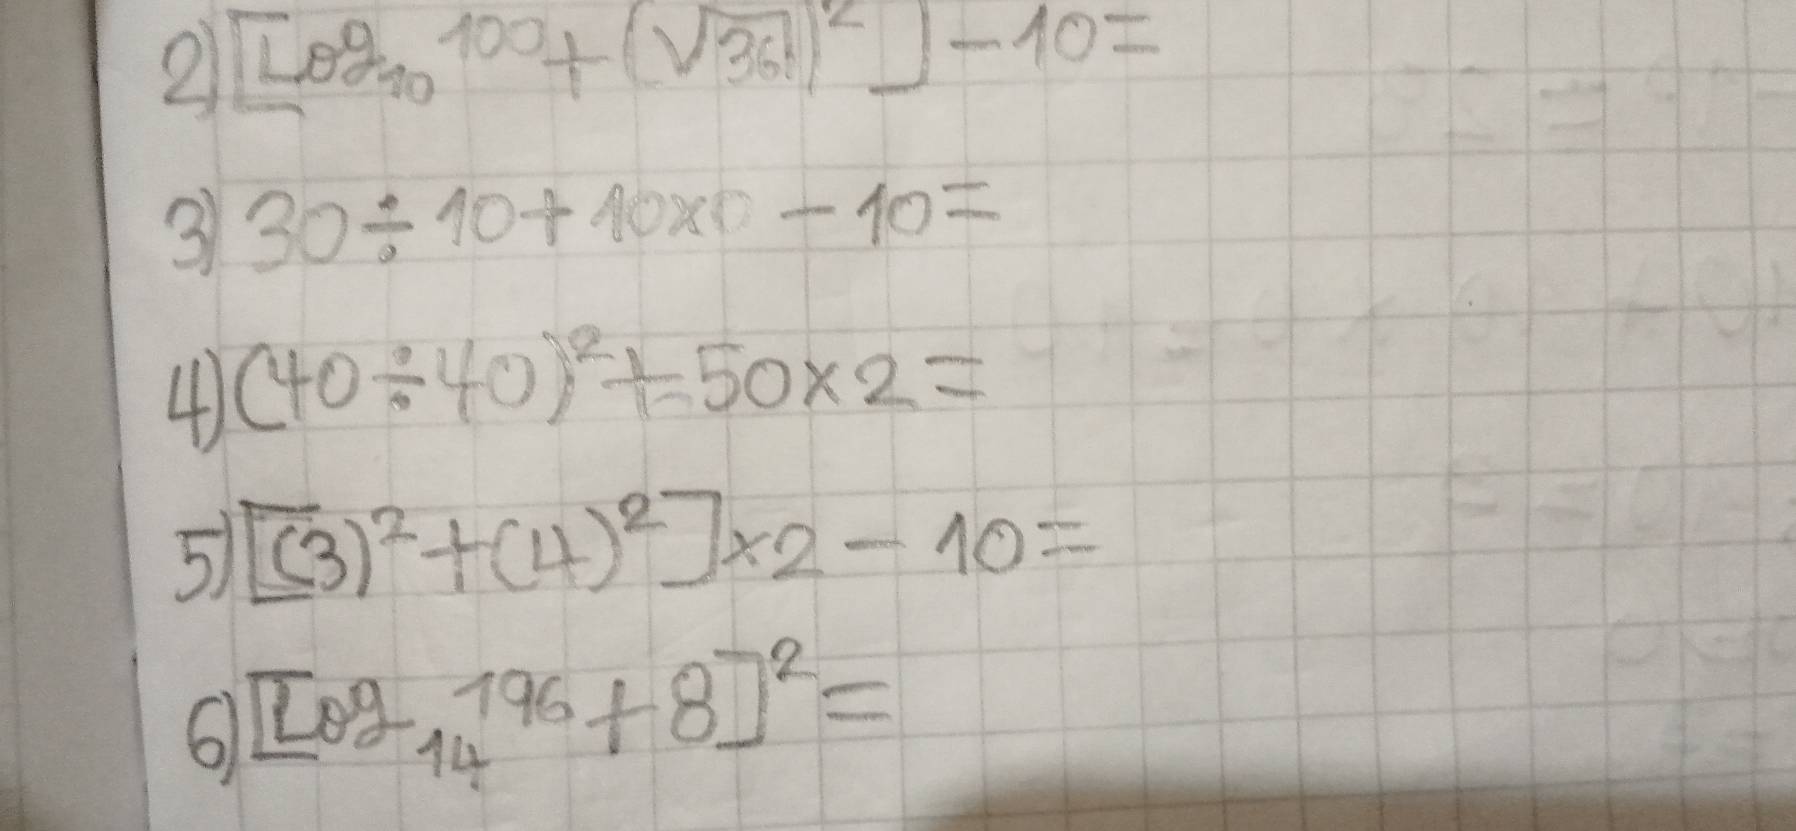 2) [Log₁₀ 100 + (√36)² ] - 10 =
3) 30 ÷ 10 + 10 x 0 - 10 =
4) (40 ÷ 40)² + 50 x 2 =
5) [(3)² + (4)² ] x 2 - 10 =
6) [Log₁₄ 196 + 8]² =